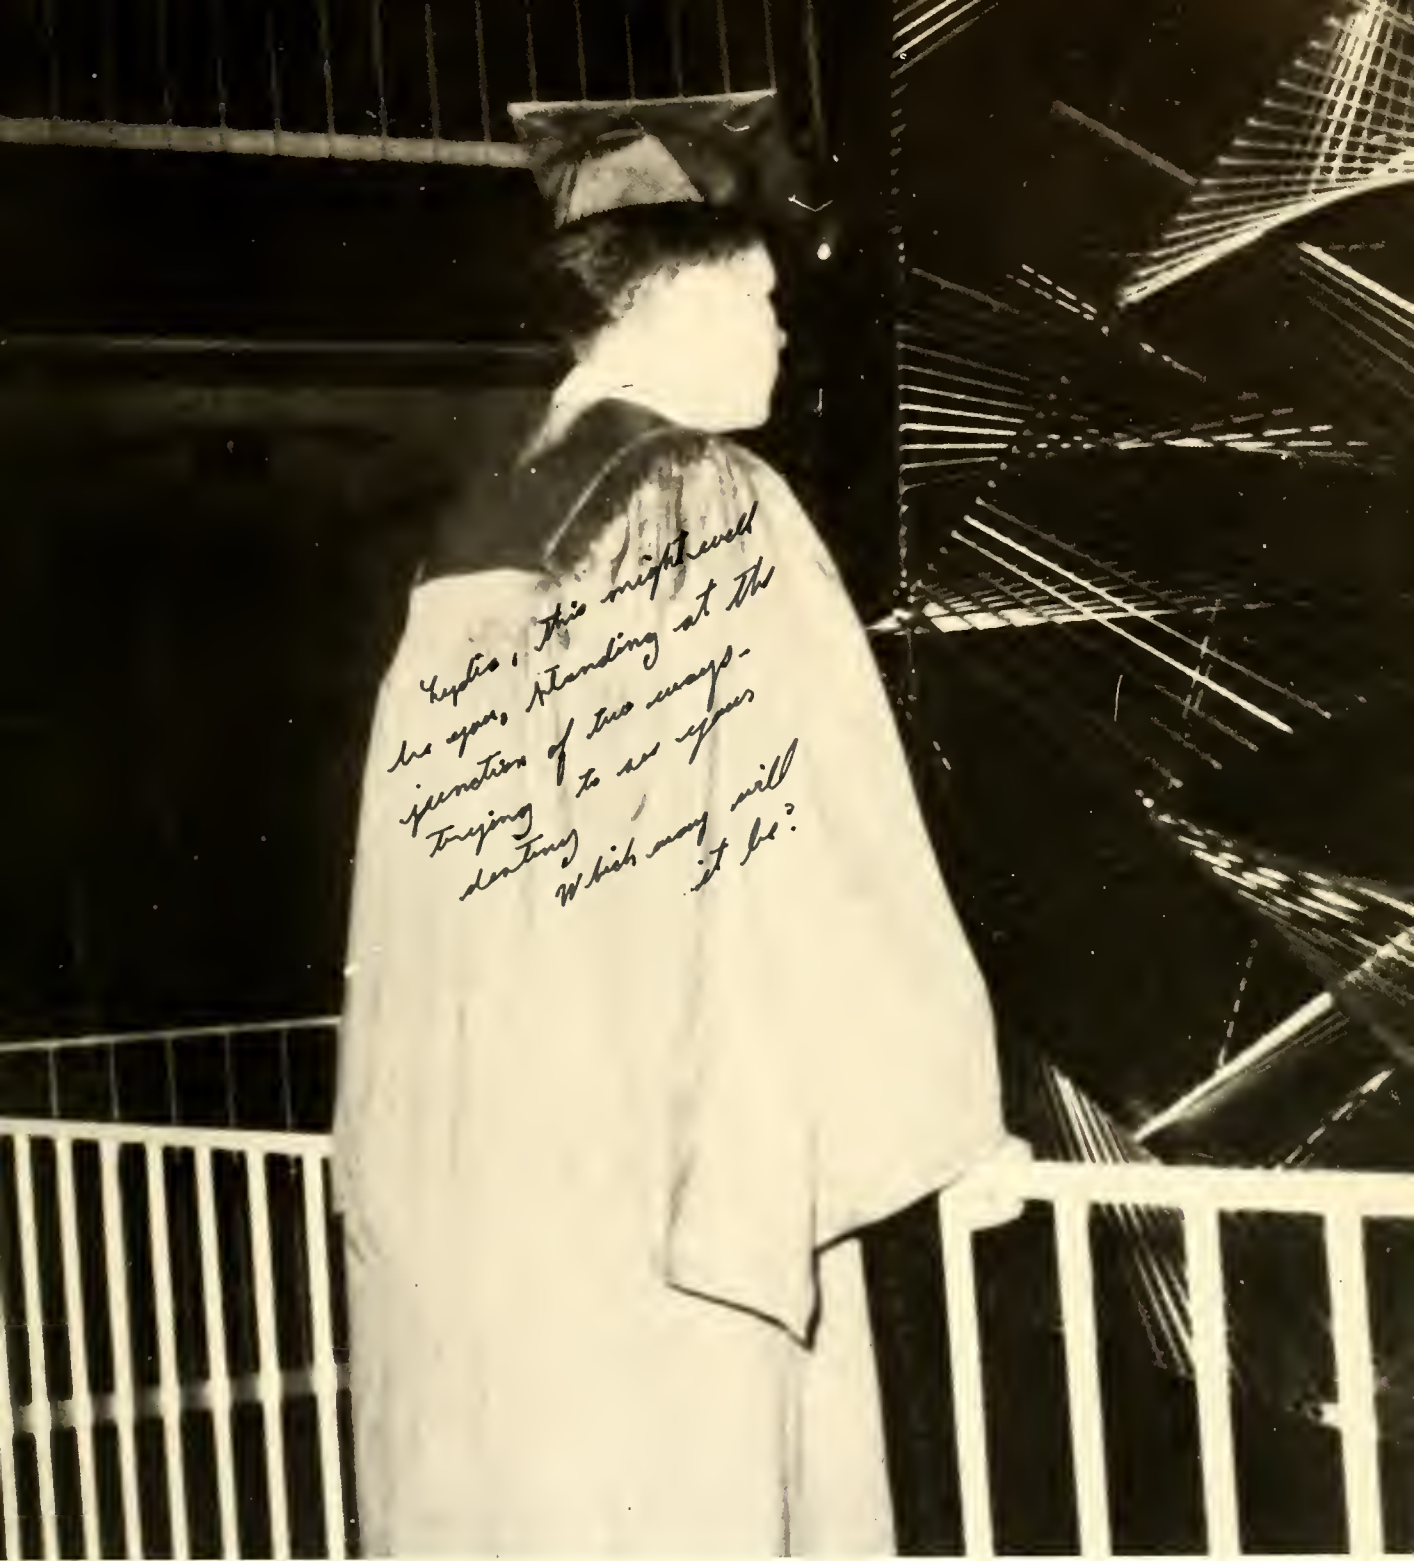 Lydia, this might well
be you, standing at the
junction of two ways-
trying to see your
destiny
Which way will
it be?